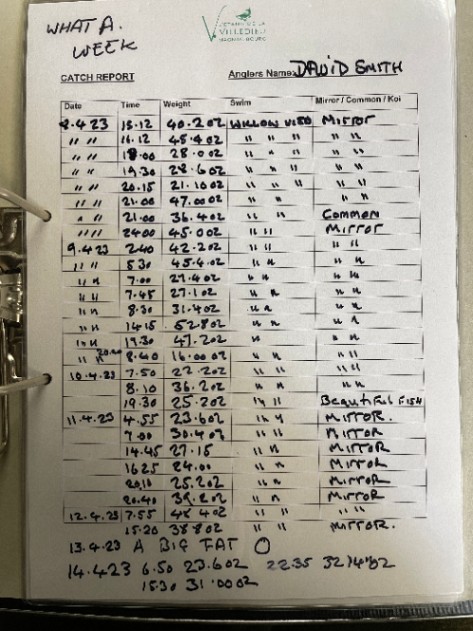 WHAT A.
WEEK
VILLEDON
CATCH REPORT Anglers Name: DAVID SMITH
Date Time Weight Swim Mirror / Common / Koi
8.4.23 15.12 40.2oz WILLOW VIEW Mirror
〃 〃 16.12 45.4oz 〃 〃 〃 〃 〃
〃 〃 18.00 28.0oz 〃 〃 〃 〃 〃
〃 〃 19.30 28.6oz 〃 〃 〃 〃 〃
〃 〃 20.15 21.10oz 〃 〃 〃 〃 〃
〃 〃 21.00 47.00oz 〃 〃 〃 〃
〃 〃 21.00 36.4oz 〃 〃 Common
〃 〃 2400 45.0oz 〃 〃 Mirror
9.4.23 2.40 42.2oz 〃 〃 〃 〃
〃 〃 5.30 45.4oz 〃 〃 〃 〃
〃 〃 7.00 27.4oz 〃 〃 〃 〃
〃 〃 7.45 27.1oz 〃 〃 〃 〃
〃 〃 8.30 31.4oz 〃 〃 〃 〃
〃 〃 1415 52.8oz 〃 〃 〃 〃
〃 〃 19.30 47.2oz 〃 〃 〃
〃 〃 8.40 16.00oz 〃 〃 〃 〃
10.4.23 7.50 22.2oz 〃 〃 〃 〃
8.10 36.2oz 〃 〃 〃 〃
19.30 25.2oz 〃 〃 Beautiful Fish
11.4.23 4.55 23.6oz 〃 〃 Mirror.
7.00 30.4oz 〃 〃 Mirror
14.45 27.15 〃 〃 Mirror
1625 24.00 〃 〃 Mirror
20,10 25.2oz 〃 〃 Mirror
20.40 39.2oz 〃 〃 Mirror
12.4.23 7.55 48 4oz 〃 〃 〃 〃
15.20 38.8oz 〃 〃 Mirror.
13.4.23 A BIG FAT O
14.4.23 6.50 23.6oz 22.35 32 14oz
15.30 31.00oz